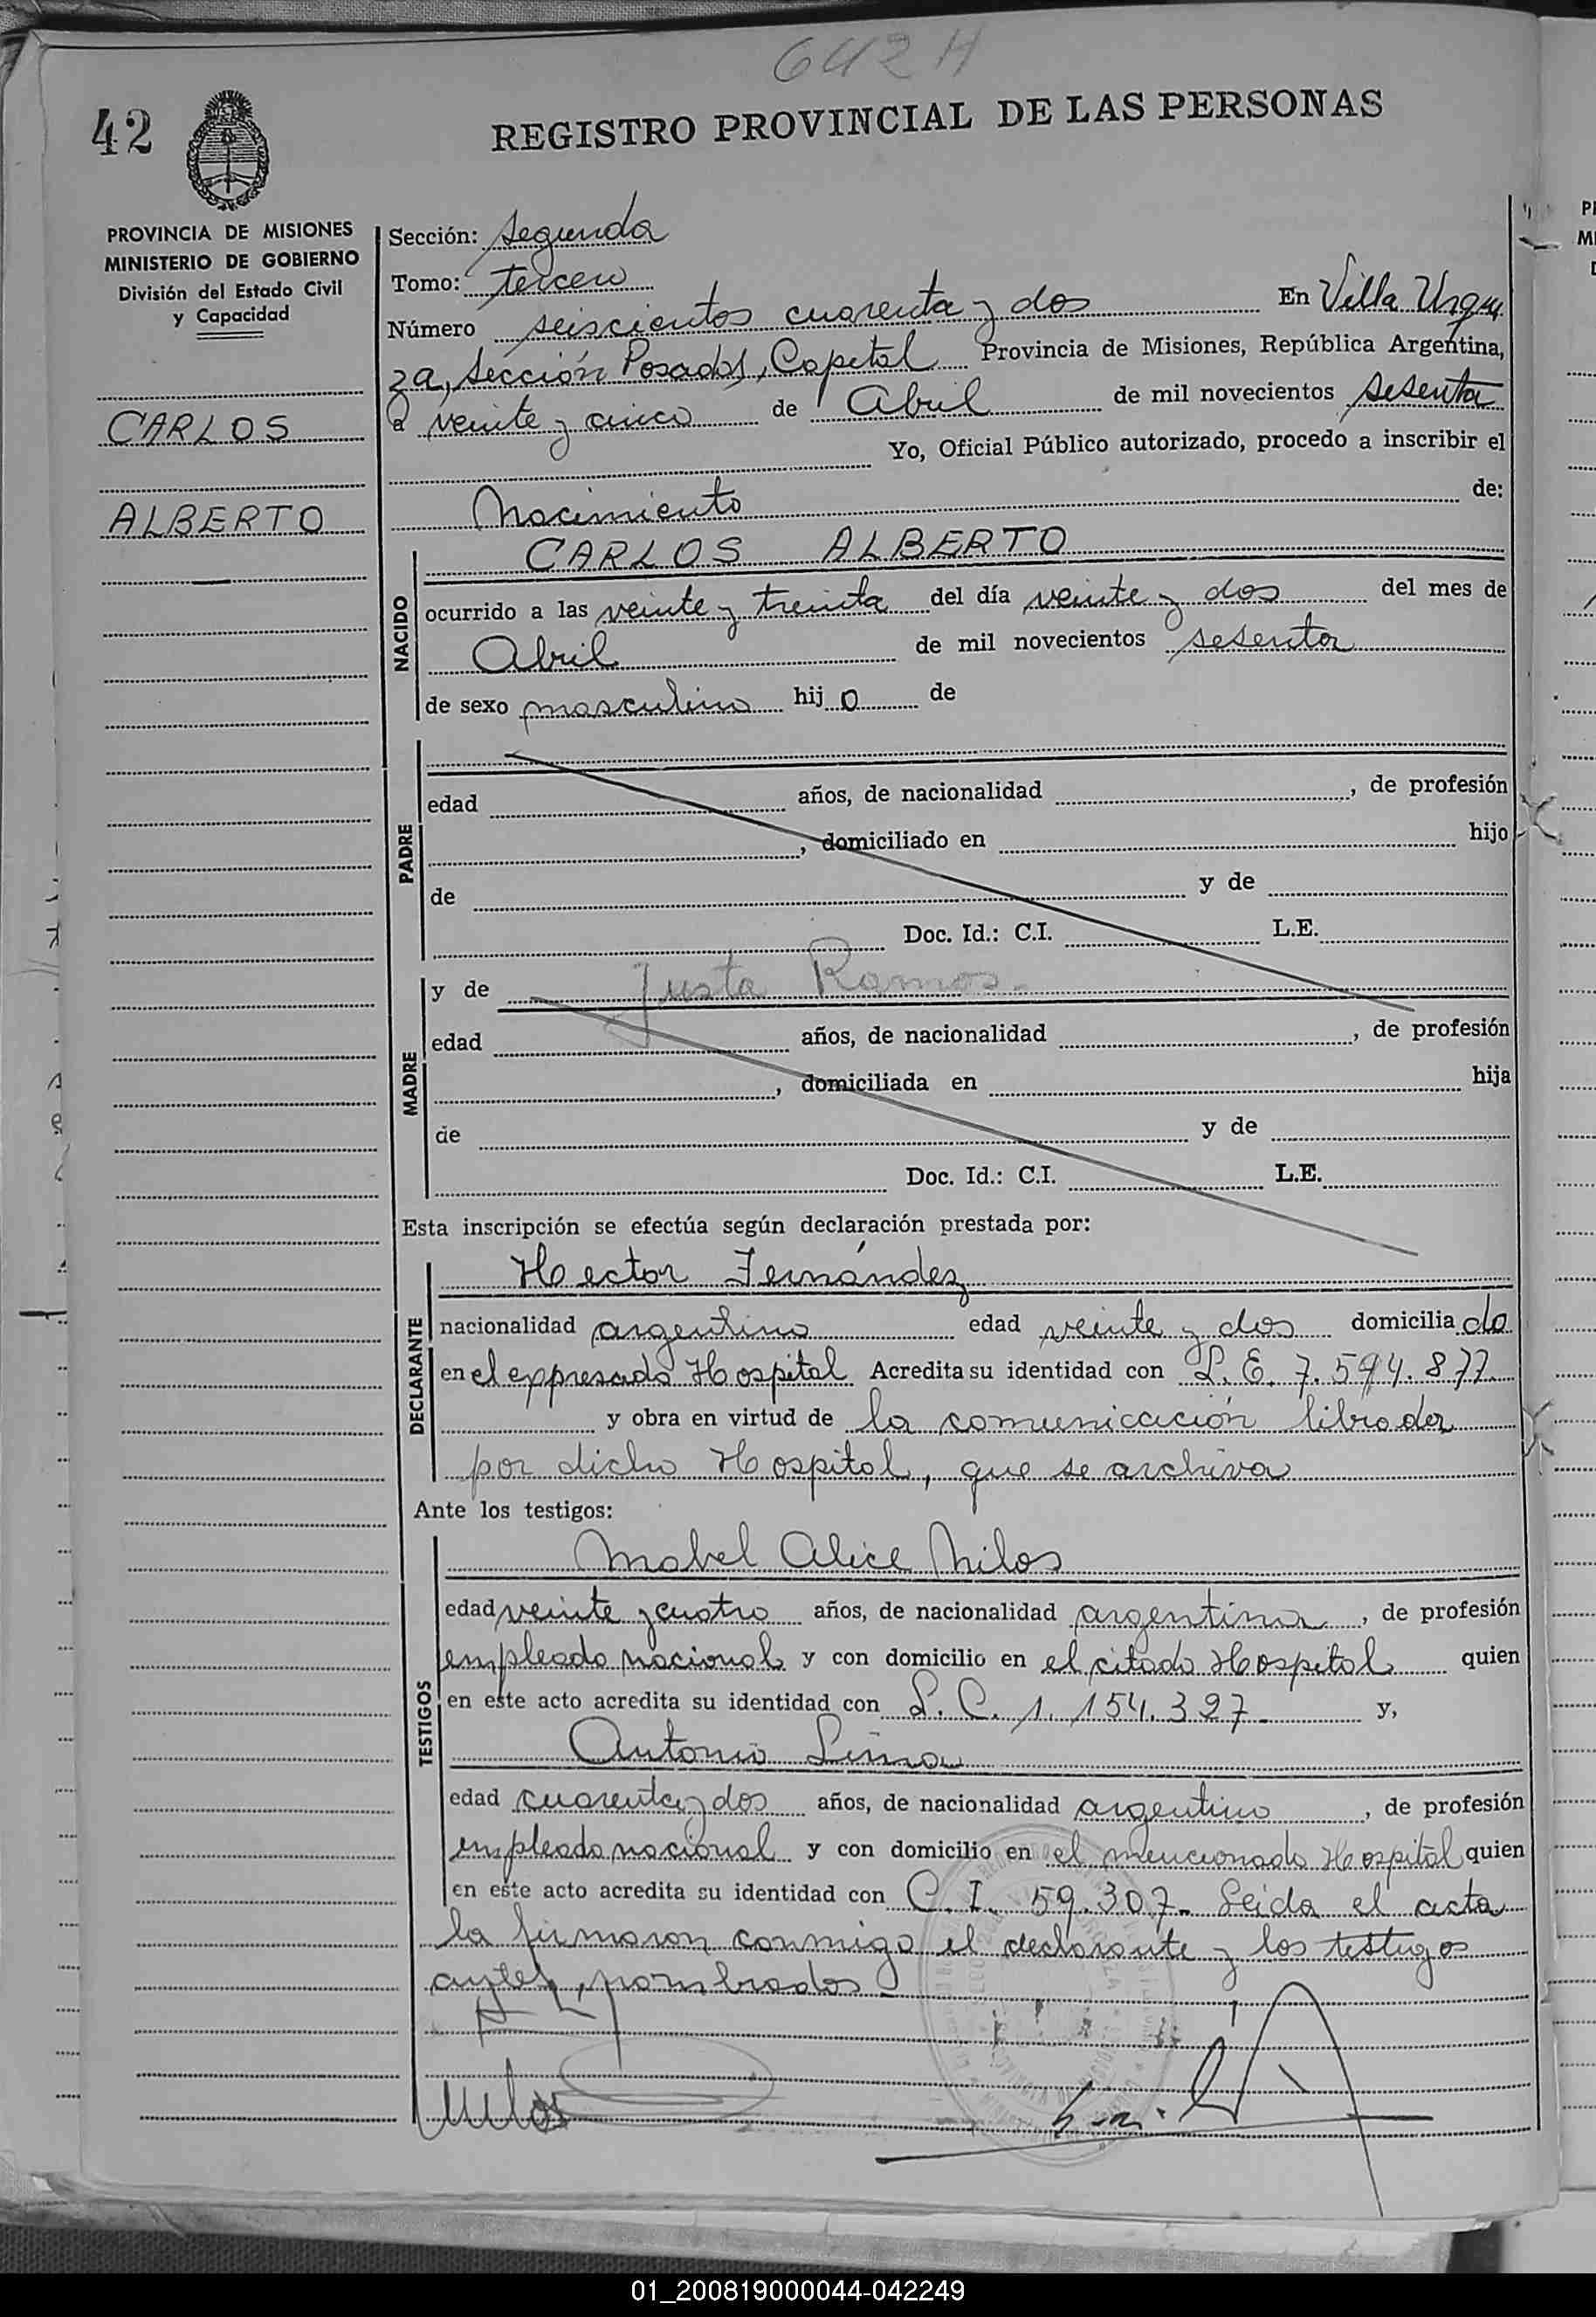 642 H
42
REGISTRO PROVINCIAL DE LAS PERSONAS
PROVINCIA DE MISIONES
MINISTERIO DE GOBIERNO
División del Estado Civil
y Capacidad
CARLOS
ALBERTO
Sección: Segunda
Tomo: tercero
Número seiscientos cuarenta y dos En Villa Urqui
za, Sección Posadas, Capital Provincia de Misiones, República Argentina,
a veinte y cinco de Abril de mil novecientos sesenta
Yo, Oficial Público autorizado, procedo a inscribir el
Nacimiento de:
NACIDO
CARLOS ALBERTO
ocurrido a las veinte y treinta del día veinte y dos del mes de
Abril de mil novecientos sesenta
de sexo masculino hijo de
PADRE
edad años, de nacionalidad , de profesión
, domiciliado en hijo
de y de
Doc. Id.: C.I. L.E.
MADRE
y de Justa Ramos.
edad años, de nacionalidad , de profesión
, domiciliada en hija
de y de
Doc. Id.: C.I. L.E.
Esta inscripción se efectúa según declaración prestada por:
DECLARANTE
Hector Fernández
nacionalidad argentino edad veinte y dos domiciliado
en el expresado Hospital Acredita su identidad con L. E. 7.594.877
y obra en virtud de la comunicación librada
por dicho Hospital, que se archiva
Ante los testigos:
TESTIGOS
Mabel Alice Milos
edad veinte y cuatro años, de nacionalidad argentina, de profesión
empleada nacional y con domicilio en el citado Hospital quien
en este acto acredita su identidad con L. C. 1.154.327- y,
Antonio Lima
edad cuarenta y dos años, de nacionalidad argentino, de profesión
empleado nacional y con domicilio en el mencionado Hospital quien
en este acto acredita su identidad con C. I. 59.307- Leida el acta
la firmaron conmigo el declarante y los testigos
antes nombrados-
Milos
01_200819000044-042249